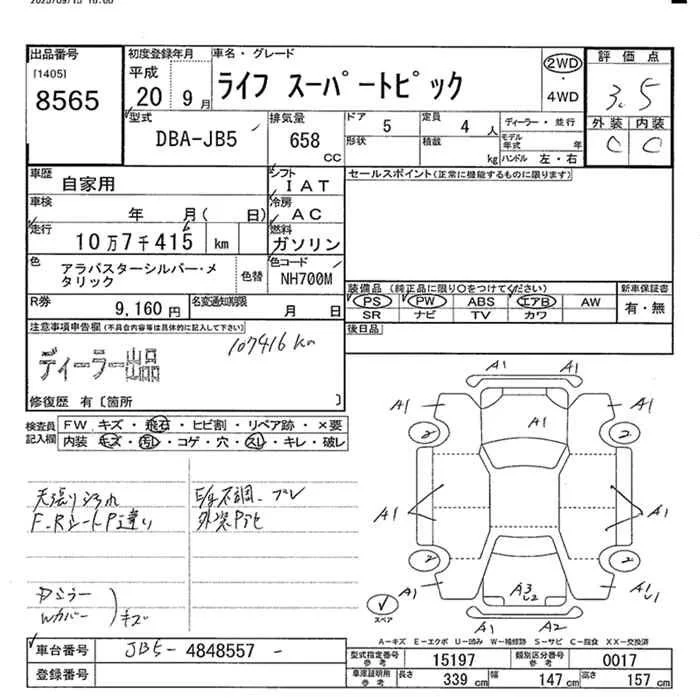 2025/09/15 10:00
出品番号
[1405]
8565
初度登録年月
平成
20 9 月
車名・グレード
ライフ スーパートピック
2WD
・
4WD
評価点
3.5
外装 内装
C C
型式
DBA-JB5
排気量
658
CC
ドア
5
定員
4 人
形状
積載
kg
ディーラー・並行
モデル年式 年
ハンドル 左・右
車歴
自家用
シフト
IAT
車検
年 月( 日)
冷房
AC
走行
10万7千415 km
燃料
ガソリン
色
アラバスターシルバー・メタリック
色替
色コード
NH700M
R券
9,160 円
名変通知期限
月 日
セールスポイント(正常に機能するものに限ります)
装備品 (純正品に限り○をつけてください)
PS PW ABS エアB AW
SR ナビ TV カワ
新車保証書
有・無
後日品
注意事項申告欄(不具合内容等は具体的に記入して下さい)
107416 km
ディーラー出品
修復歴 有〔箇所 〕
検査員記入欄
FW. キズ・飛石・ヒビ割・リペア跡・×要
内装 キズ・汚レ・コゲ・穴・スレ・キレ・破レ
天張りヨゴレ
F.RシートP違い
E/g不調.ブレ
外装Pアセ
Pミラー
Wカバー
キズ
A1 A1
A1 A1 A1
2 2
A1 A1
2 2
A1 A3 A1
U2 U1
A1 A2
スペア
A-キズ E-エクボ U-凹み W-補修跡 S-サビ C-腐食 XX-交換済
車台番号
JB5- 4848557 -
登録番号
型式指定番号
参考
15197
類別区分番号
参考
0017
車庫証明用
参考
長さ 339 cm 幅 147 cm 高さ 157 cm